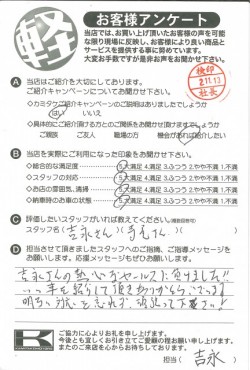 軽
お客様アンケート
当店では、お買い上げ頂いたお客様の声を可能
な限り現場に反映し、お客様により良い商品と
サービスを提供する事に努めています。
大変お手数ですが是非お声をお聞かせ下さい。
検印
2.11.13
社長
A 当店はご紹介を大切にしてあります。
ご紹介キャンペーンについてお聞かせ下さい。
◇カミタケご紹介キャンペーンのご説明はありましたでしょうか
はい いいえ
◇具体的にご紹介頂ける方とのご関係をお聞かせ頂けますでしょうか
ご親族 ご友人 職場の方 機会があれば紹介したい
B 当店を実際にご利用になった印象をお聞かせ下さい。
◇総合的な満足度 5.大満足 4.満足 3.ふつう 2.やや不満 1.不満
◇スタッフの対応 5.大満足 4.満足 3.ふつう 2.やや不満 1.不満
◇お店の雰囲気、清掃 5.大満足 4.満足 3.ふつう 2.やや不満 1.不満
◇納車時のお車の状態 5.大満足 4.満足 3.ふつう 2.やや不満 1.不満
C 評価したいスタッフがいれば教えてください。(複数回答可)
スタッフ名(吉永さん)( さん)
D 担当させて頂きましたスタッフへのご指摘、ご指導メッセージを
お願いします。応援メッセージもぜひお願いします。
吉永さんの熱心なセールスに負けました!!
明るい対応を忘れず、頑張って下さい!
K
ご協力に心よりお礼を申し上げます。
今後とも宜しくお引き立てご愛顧の程お願い申し上げます。
またのご来店を心からお待ちしております。
担当( 吉永 )